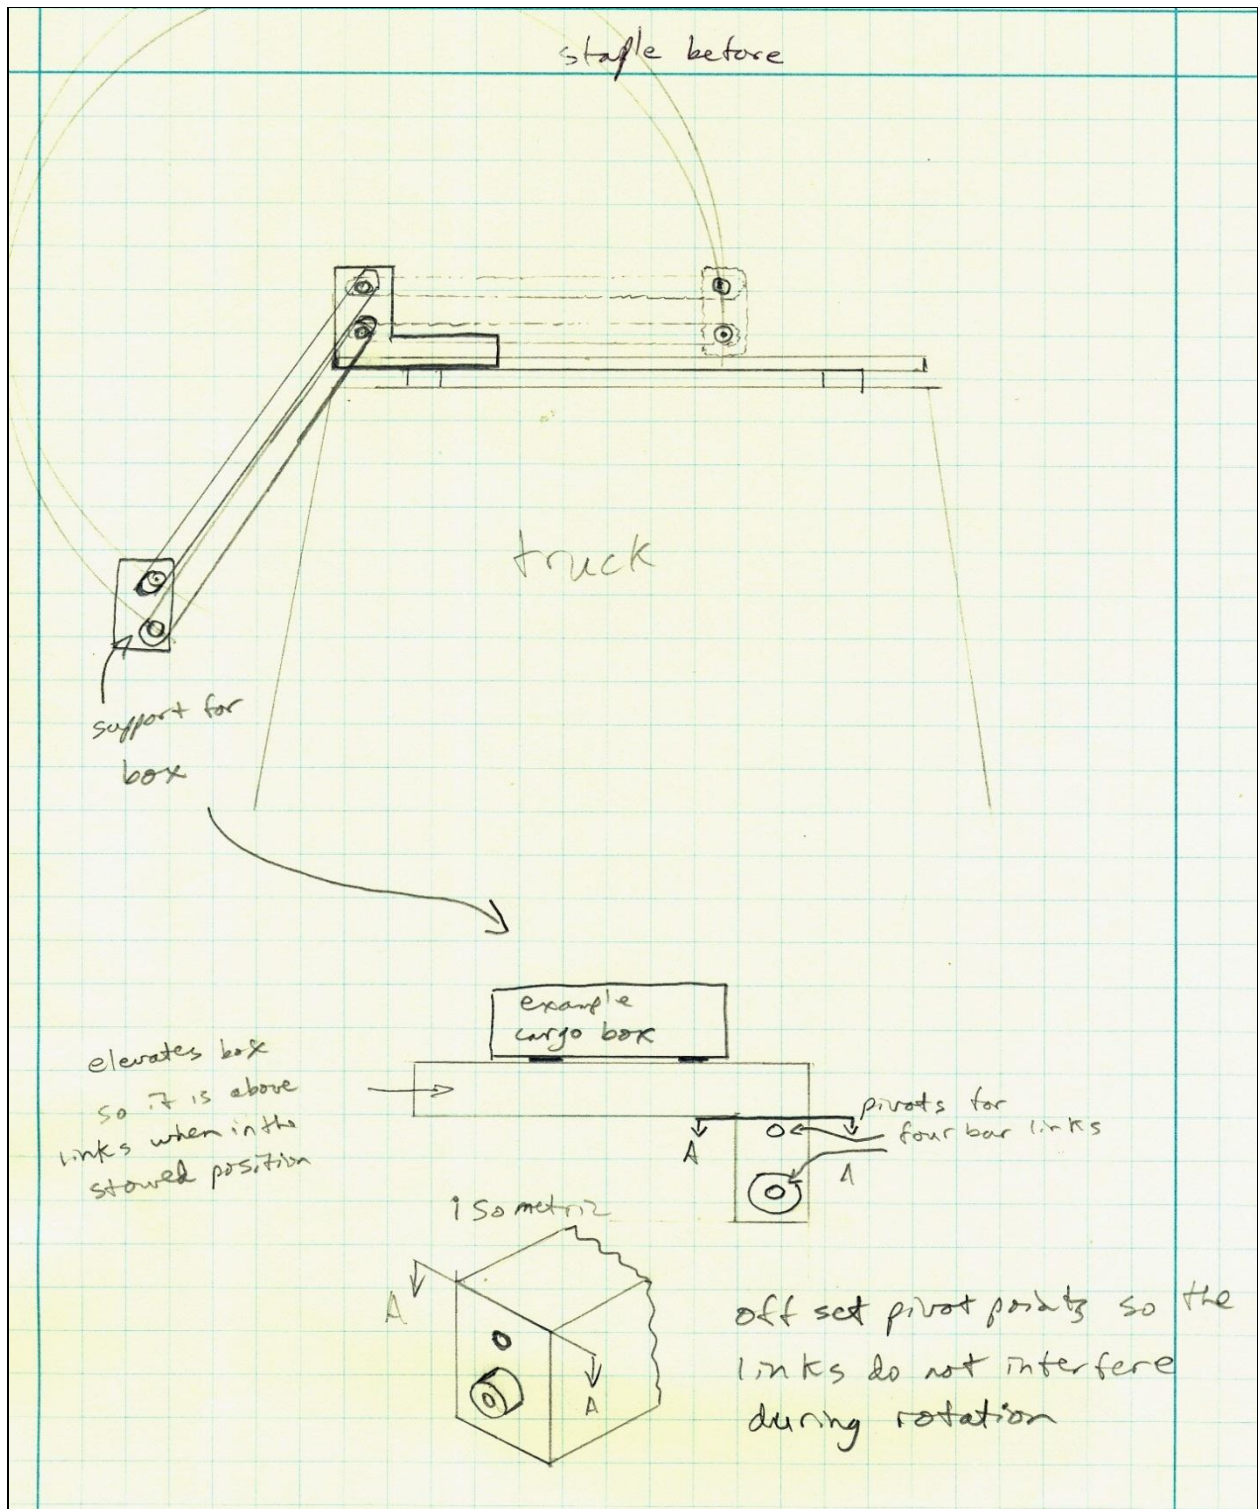 staple before
truck
support for
box
example
cargo box
elevates box
so it is above
links when in the
stowed position
pivots for
four bar links
A
A
isometric
A
A
off set pivot points so the
links do not interfere
during rotation